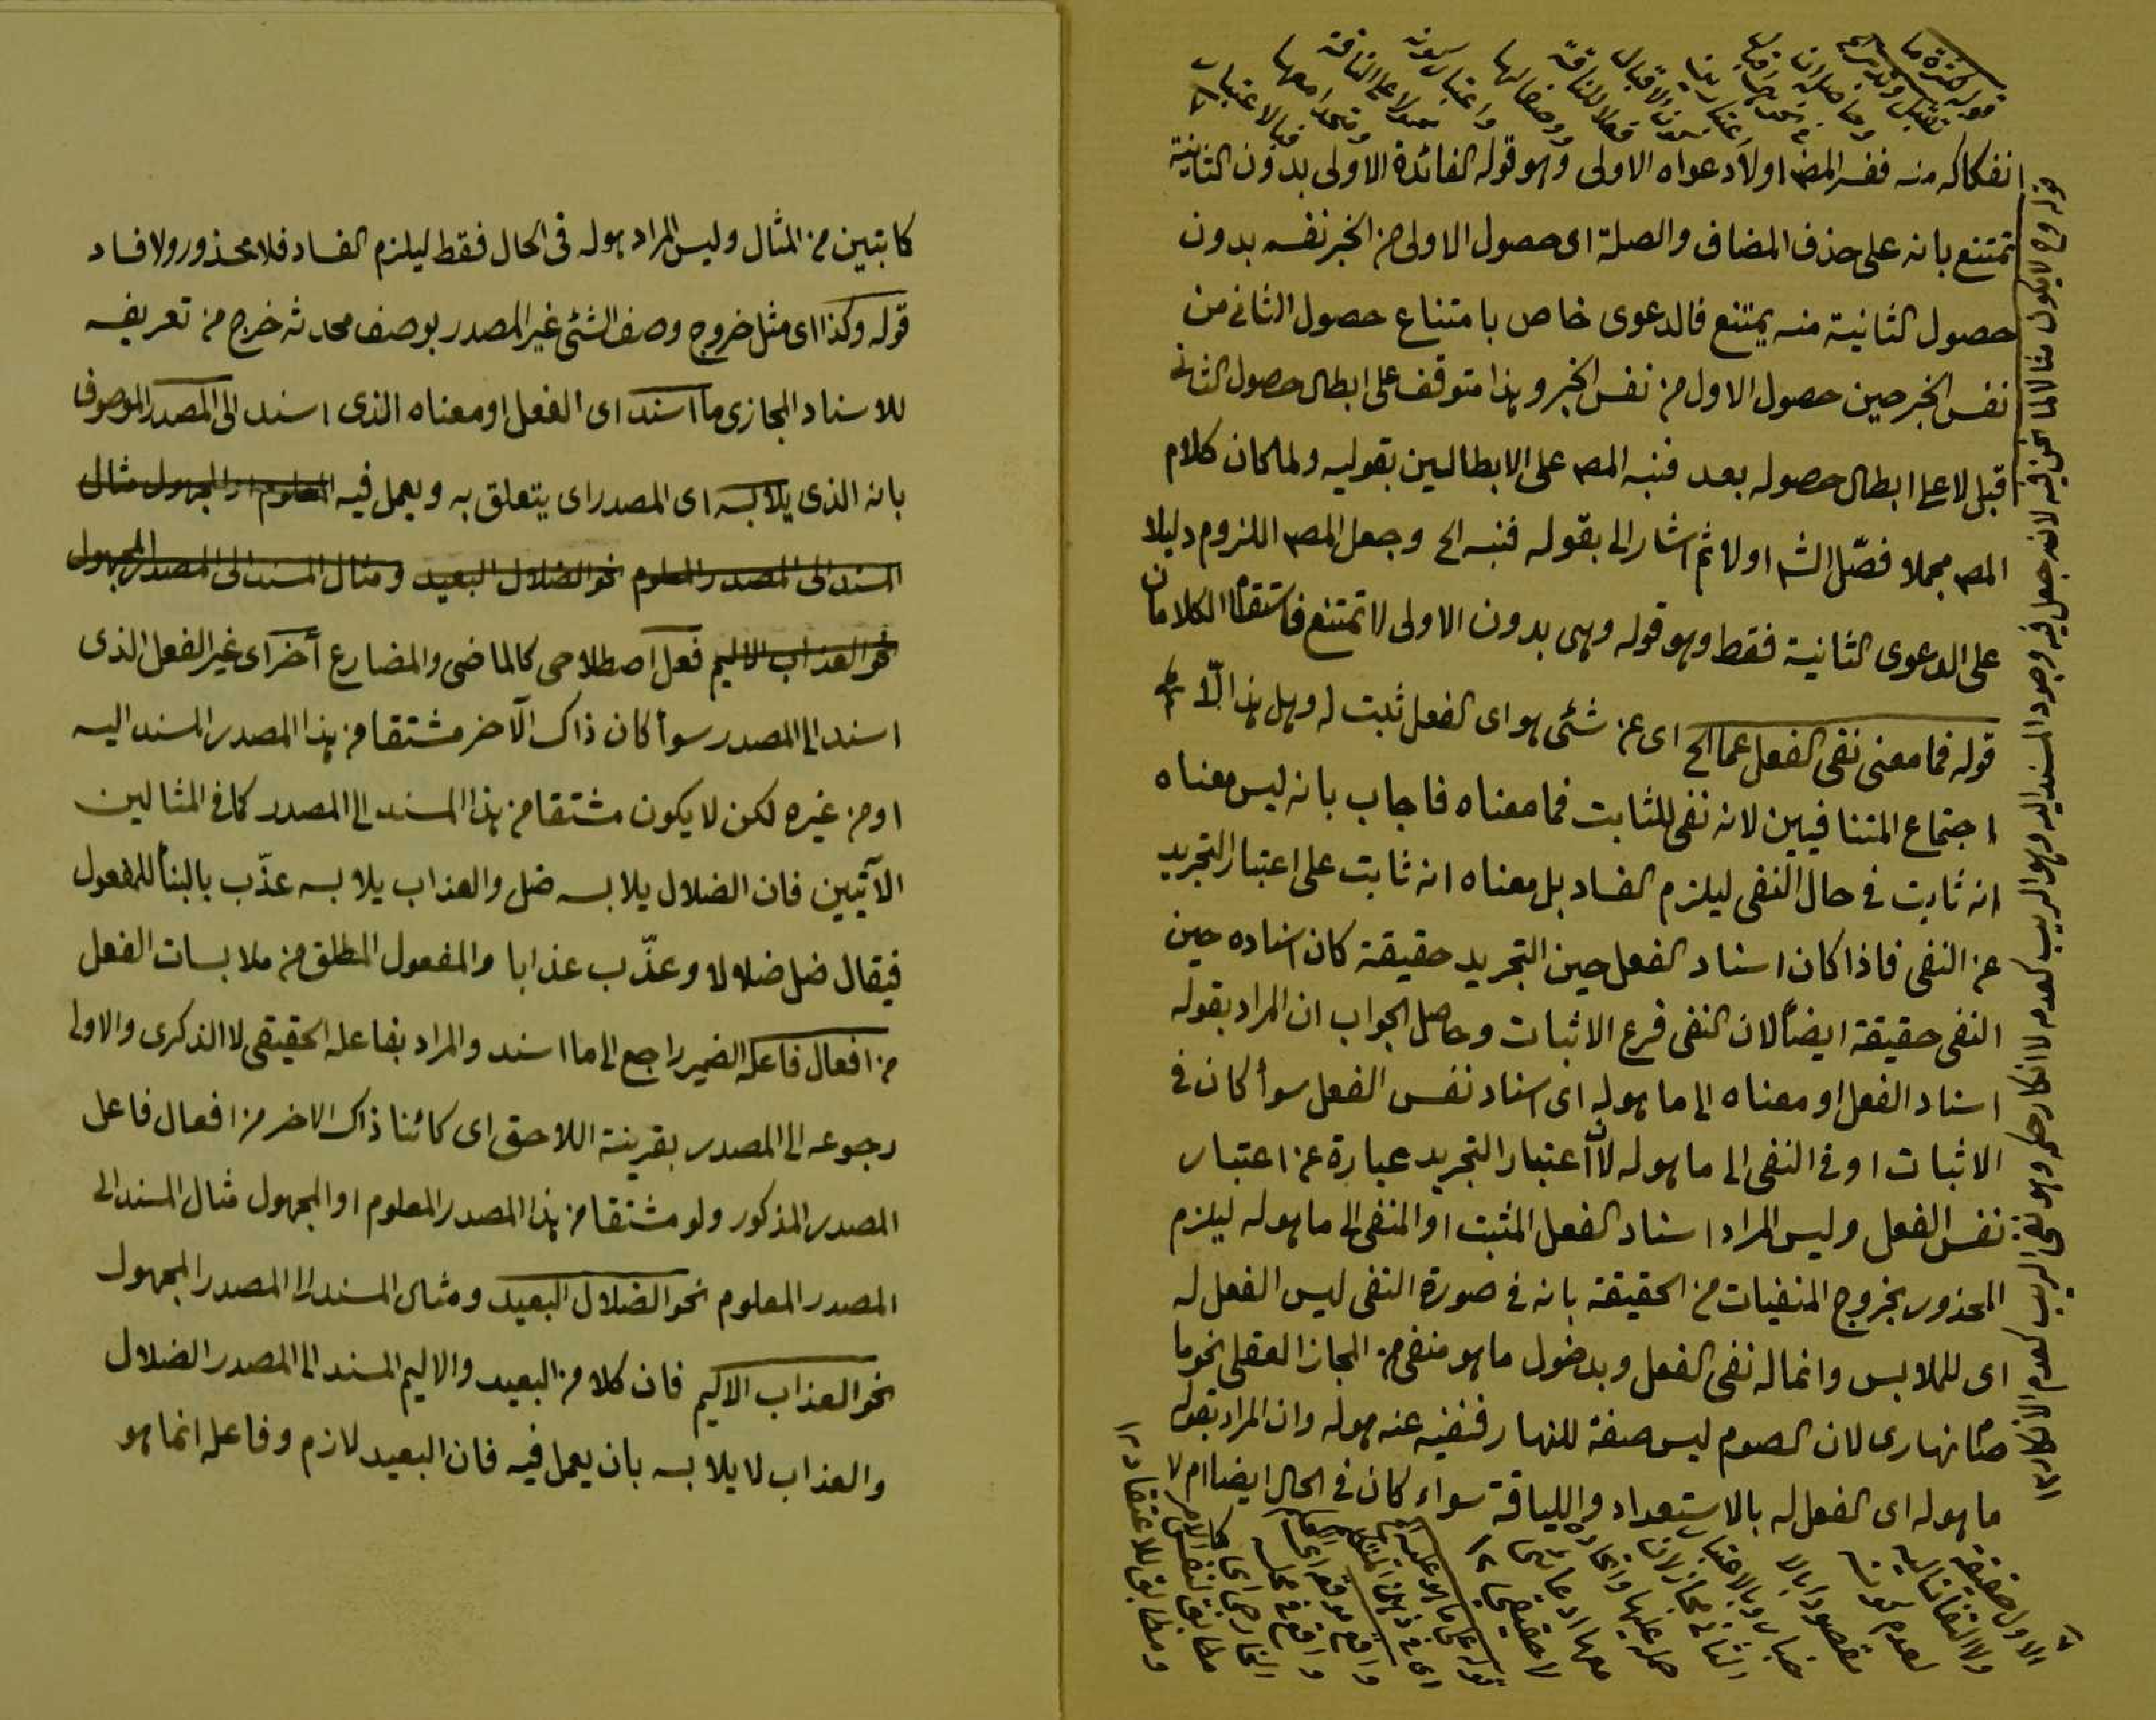 انفكاكه منه ففسر المصـ اولا دعواه الاولى وهو قوله الفائدة الاولى بدون الثانية
تمتنع بانه على حذف المضاف والصلة اى حصول الاولى من الخبر نفسه بدون
حصول الثانية منه يمتنع فالدعوى خاص بامتناع حصول الثانى من
نفس الخبر حين حصول الاول من نفس الخبر وهذا متوقف على ابطال حصول الثانى
قبل لا على ابطال حصوله بعد فنبه المصـ على الابطالين بقوليه ولما كان كلام
المصـ مجملا فصّل الشـ اولا ثم اشار الى بقوله فنبه الخ وجعل المصـ اللزوم دليلا
على الدعوى الثانية فقط وهو قوله وهى بدون الاولى لا تمتنع فاستقام الكلامان
قوله فما معنى نفى الفعل عما الخ اى عن شئى هو اى الفعل ثبت له وهل هذا الّا
اجتماع المتنافيين لانه نفى للثابت فما معناه فاجاب بانه ليس معناه
انه ثابت فى حال النفى ليلزم الفساد بل معناه انه ثابت على اعتبار التجريد
عن النفى فاذا كان اسناد الفعل حين التجريد حقيقة كان اسناده حين
النفى حقيقة ايضا لان النفى فرع الاثبات وحاصل الجواب ان المراد بقوله
اسناد الفعل او معناه الى ما هو له اى اسناد نفس الفعل سوأ كان فى
الاثبات او فى النفى الى ما هو له لان اعتبار التجريد عبارة عن اعتبار
نفس الفعل وليس المراد اسناد الفعل المثبت او المنفى الى ما هو له ليلزم
المحذور بخروج المنفيات من الحقيقة بانه فى صورة النفى ليس الفعل له
اى للملابس وانما له نفى الفعل وبدخول ما هو منفى من المجاز العقلى نحو ما
صام نهارى لان الصوم ليس صفة للنهار فنفيه عنه هو له وان المراد بقوله
ما هو له اى الفعل له بالاستعداد واللياقة سواء كان فى الحال ايضا ام لا
قوله وح لا يكون مثالا لما نحن فيه لانه جعل فيه وجود المسند اليه وهو الريب كعدمه لا انكار حكم وهو نفى الريب كعدم الانكار ١٢
كاتبين من المثال وليس المراد هو له فى الحال فقط ليلزم الفساد فلا محذور ولا فساد
قوله وكذا اى مثل خروج وصف الشئى غير المصدر بوصف محدثه خرج من تعريفه
للاسناد المجازى ما اسند اى الفعل او معناه الذى اسند الى المصدر الموصوف
بانه الذى يلابسه اى المصدر اى يتعلق به ويعمل فيه المعلوم او المجهول مثال
المسند الى المصدر المعلوم نحو الضلال البعيد ومثال المسند الى المصدر المجهول
نحو العذاب الاليم فعل اصطلاحى كالماضى والمضارع أخر اى غير الفعل الذى
اسند الى المصدر سوأ كان ذاك الآخر مشتقا من هذا المصدر المسند اليه
او من غيره لكن لا يكون مشتقا من هذا المسند الى المصدر كما فى المثالين
الآتيين فان الضلال يلابسه ضل والعذاب يلابسه عذّب بالبنأ للمفعول
فيقال ضل ضلالا وعذّب عذابا والمفعول المطلق من ملابسات الفعل
من افعال فاعله الضمير راجع الى ما اسند والمراد بفاعله الحقيقى لا الذكرى والاولى
رجوعه الى المصدر بقرينة اللاحق اى كائنا ذاك الاخر من افعال فاعل
المصدر المذكور ولو مشتقا من هذا المصدر المعلوم او المجهول مثال المسند الى
المصدر المعلوم نحو الضلال البعيد ومثال المسند الى المصدر المجهول
نحو العذاب الاليم فان كلا من البعيد والاليم المسند الى المصدر الضلال
والعذاب لا يلابسه بان يعمل فيه فان البعيد لازم وفاعله انما هو